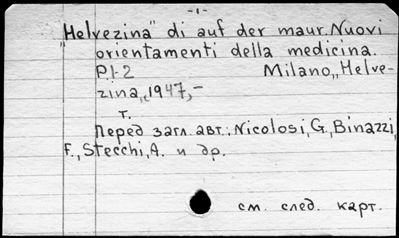 -1-
„Helvezina" di auf der maur. Nuovi
orientamenti della medicina.
P.1-2 Milano, „Helve-
zina„, 1947,-
т.
Перед загл. авт.: Nicolosi, G., Binazzi,
F., Stecchi, A. и др.
см. след. карт.